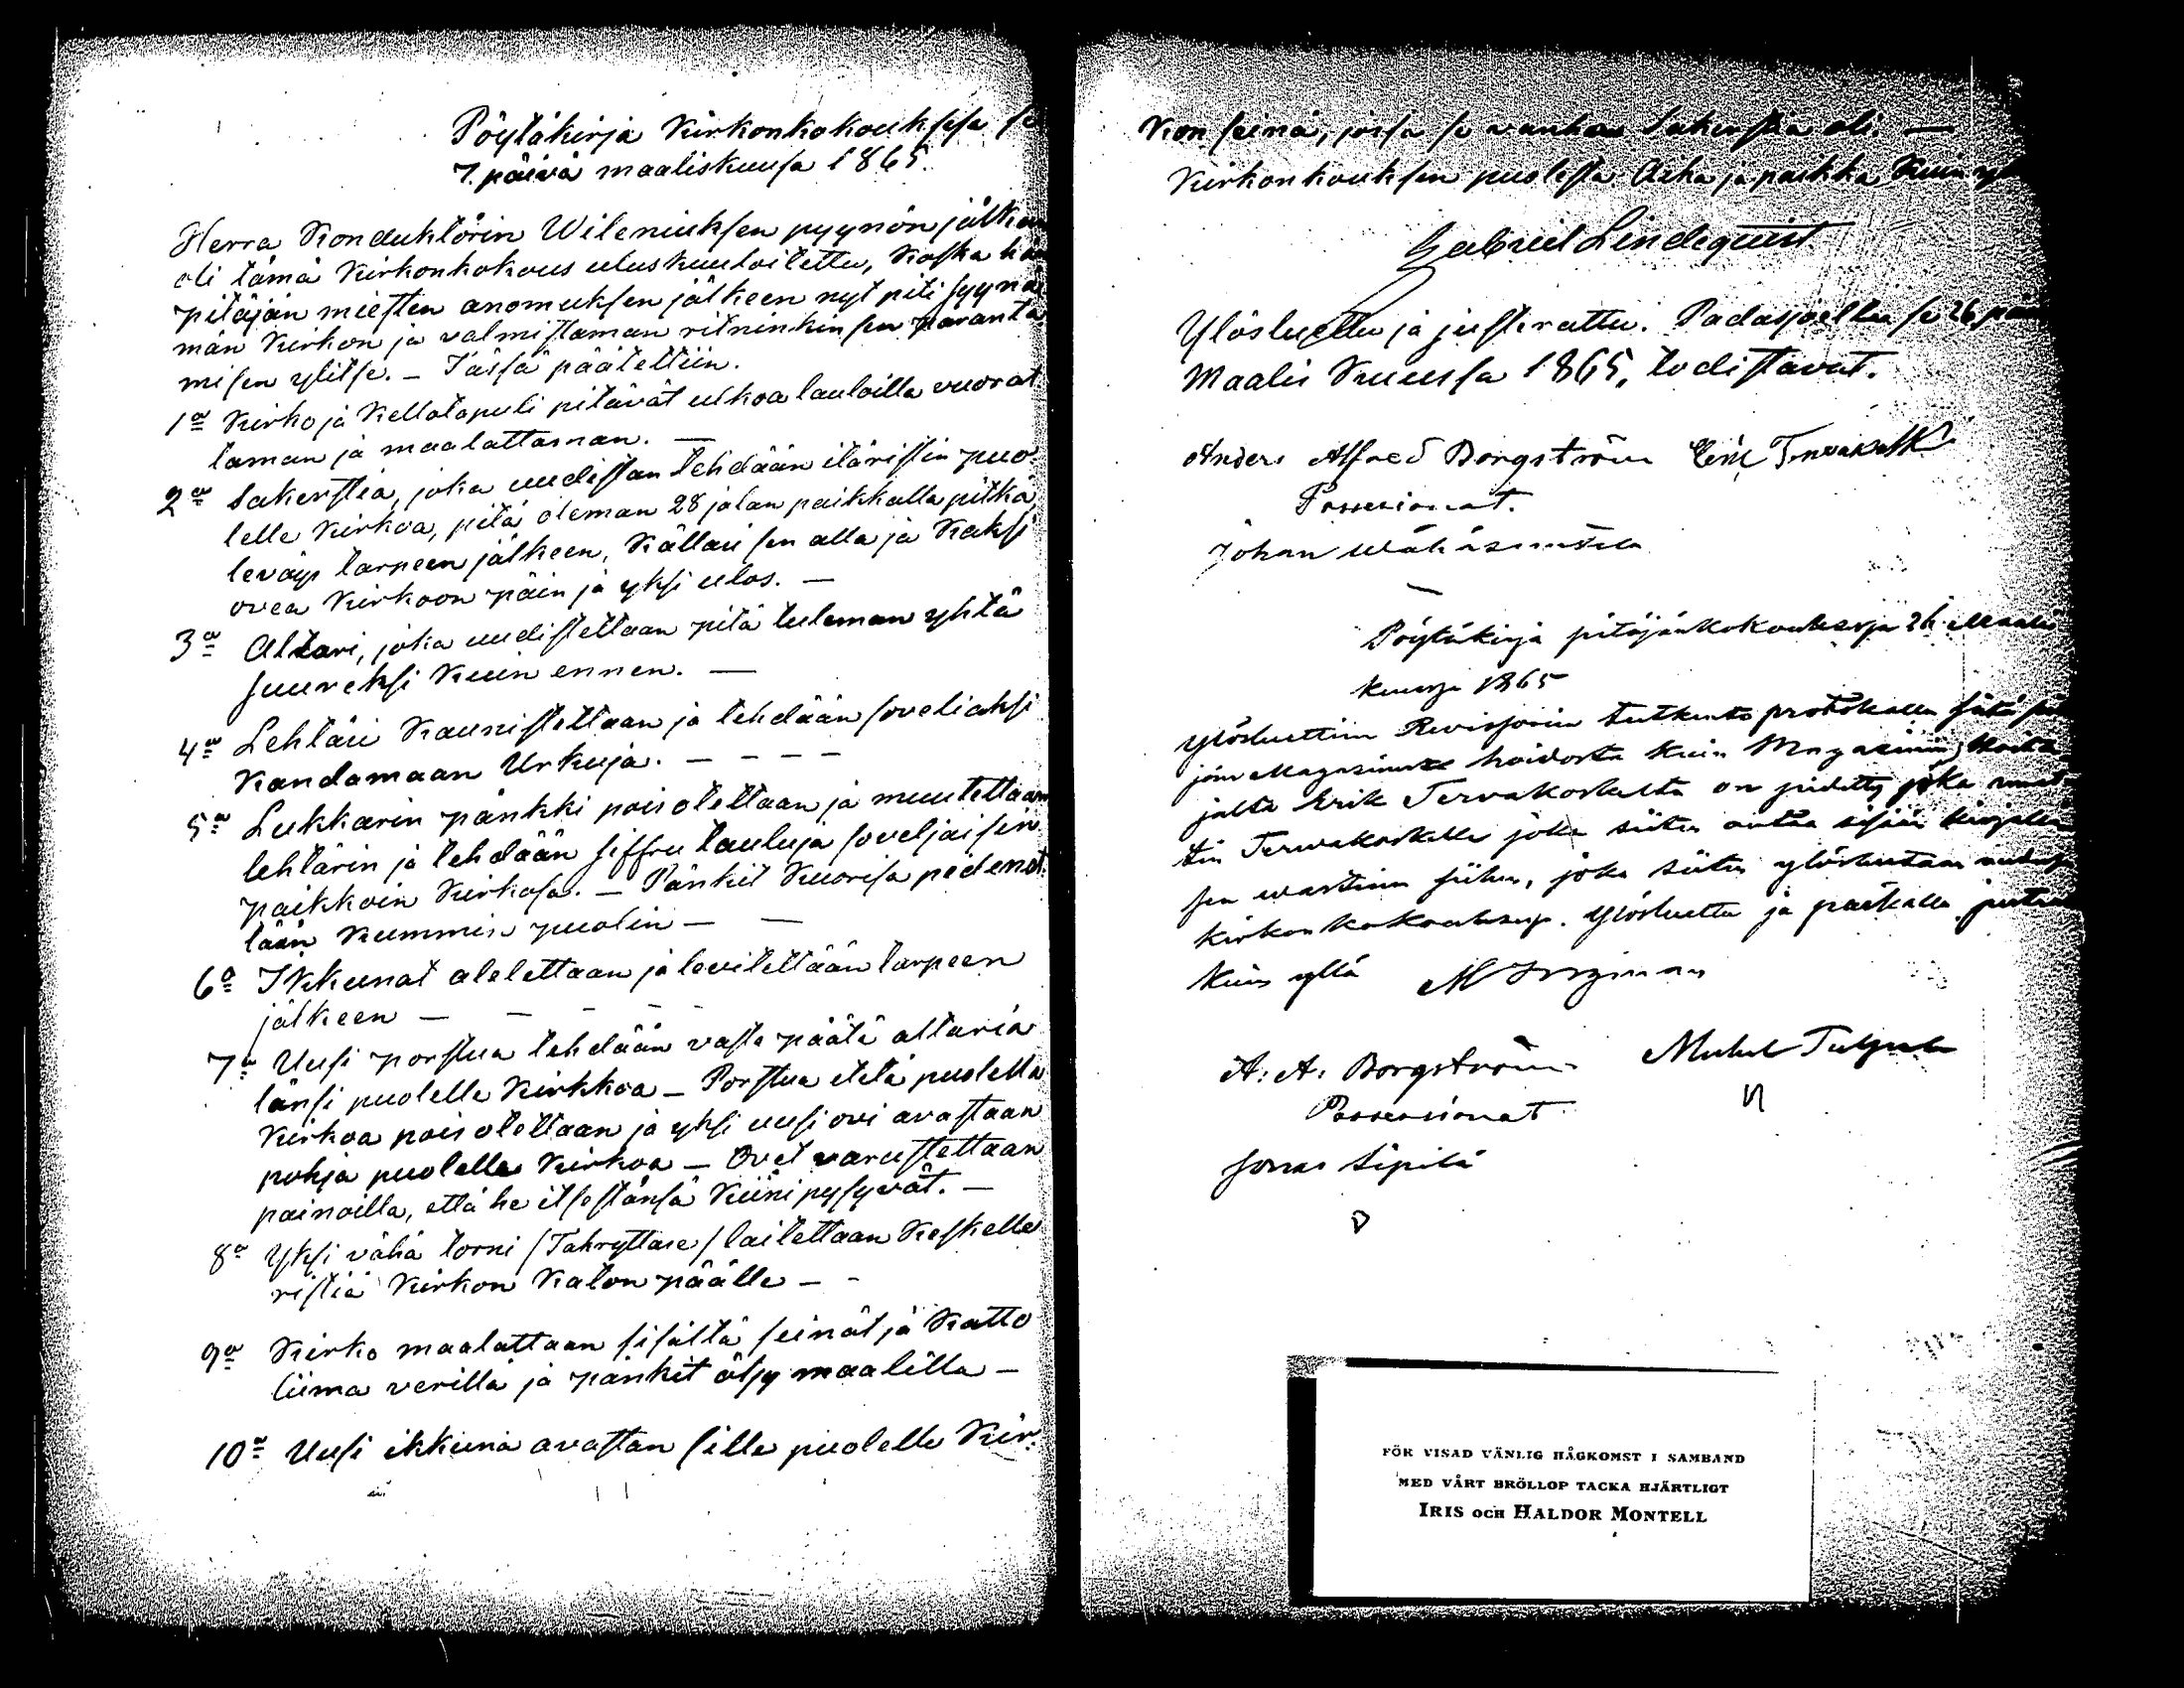 Pöytäkirja Kirkonkokouksesa se
7. päivä maaliskuusa 1865.
Herra Konduktörin Wileniuksen pyynön jälkeen
oli tämä Kirkonkokous uluskuuloitettu, Koska hän
pitäjän miesten anomuksen jälkeen nyt piti syynä
män Kirkon ja valmistaman ritninkin sen paranta
misen ylitse. – Tässä päätettiin.
1o Kirko ja Kellotapuli pitävät ulkoa lauloilla vuorat
taman ja maalattaman. —
2o Sakerstia, joka uudistan tehdään itäristin puo
lelle Kirkoa, pitä oleman 28 jalan paikkalla pitkä,
leväys tarpeen jälkeen, Källari sen alla ja Kaksi
ovea Kirkoon päin ja yksi ulos. —
3o Altari, joka uudistettaan pitä tuleman yhtä
suureksi Kuin ennen. —
4o Lehtäri Kaunistettaan ja tehdään soveliaksi
Kandamaan Urkuja. – – – –
5o Lukkarin pänkki pois otettaan ja muutettaan
lehtärin ja tehdään siffru tauluja soveljaisin
paikkoin Kirkosa. – Pänkit Kuorisa pidenet
tään Kummin puolin – —
6o Ikkunat aletettaan ja levitettään tarpeen
jälkeen – – – –
7o Uusi porstua tehdään vasta päätä altaria
länsi puolelle Kirkkoa – Porstua etelä puolella
Kirkoa pois otettaan ja yksi uusi ovi avastaan
pohja puolelle Kirkoa – Ovet varustettaan
painoilla, että he itsestänsä Kiini pysyvät. –
8o Yksi vähä torni /Takryttare/ laitettaan Keskelle
ristiä Kirkon Katon päälle – –
9o Kirko maalattaan sisältä seinät ja Katto
liima verillä ja pänkit öljy maalilla –
10o Uusi ikkuna avastan sille puolelle Kir-
kon seinä, jossa se vanha Sakerstia oli. —
Kirkonkouksen puolesta Aika ja paikka, Kuin yl
Gabriel Lindequist
Ylösluettu ja justerattu. Padasjoella se 26 päi
Maalis Kuussa 1865, todistavat.
Anders Alfred Borgström Eric Tervakoski
Possessionat.
Johan Wähäsimola
Pöytäkirja pitäjänkokouksesa 26 Maalis
kuusa 1865
Ylösluettiin Revisorein tutkinto protokolla
Magasinin hoidosta kuin Magasinin
jalta Erik Tervakoskelta on pidetty joka
tin Tervakoskelle joka siiten antaa sisään
sen wastinen siihen, joka siiten ylösluetaan
kirkonkokouksesa. Ylösluettu ja paikalla
Kuin yllä M Ingman
A: A: Borgström
Possessionat
Jonas Sipilä
FÖR VISAD VÄNLIG HÅGKOMST I SAMBAND
MED VÅRT BRÖLLOP TACKA HJÄRTLIGT
IRIS OCH HALDOR MONTELL